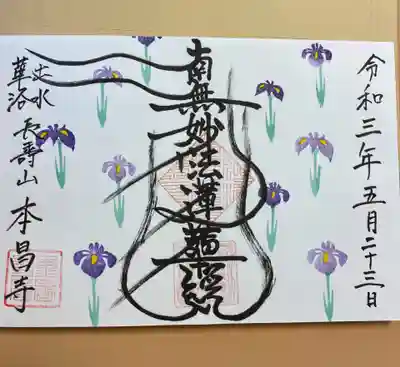 令和三年五月二十三日
南無妙法蓮華経
華洛
長壽山 本昌寺